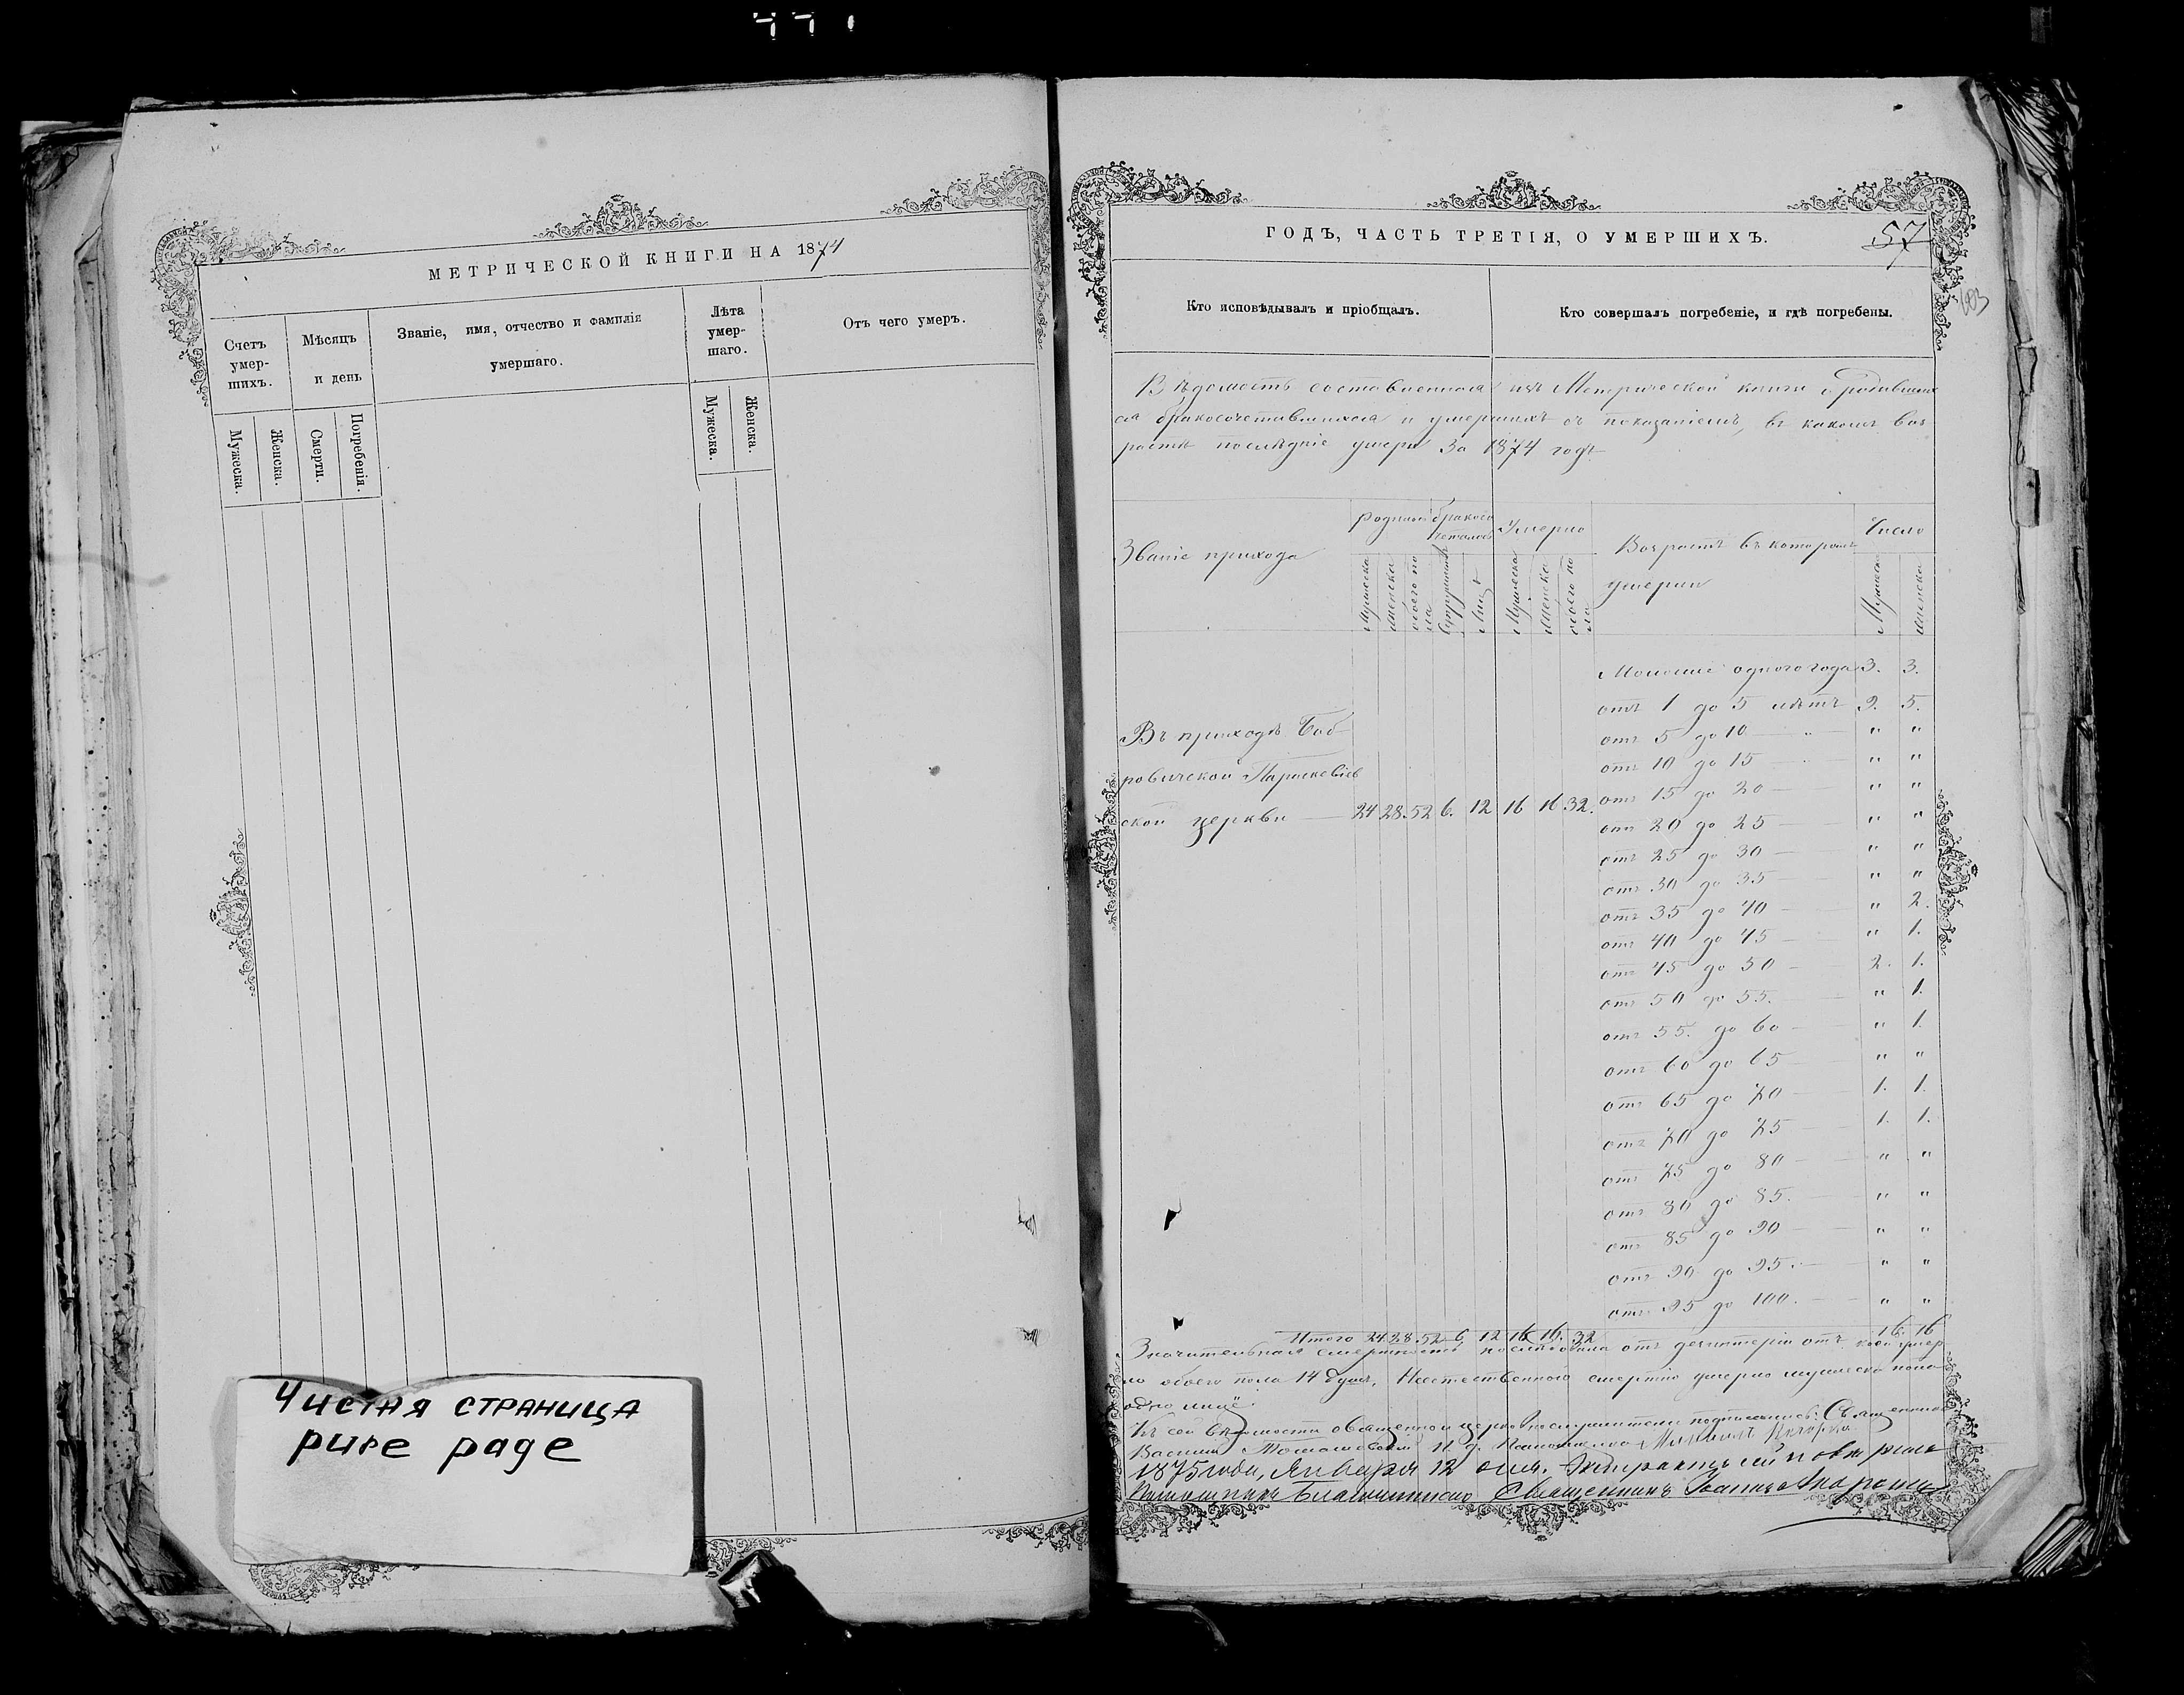 МЕТРИЧЕСКОЙ КНИГИ НА 1874
Счетъ умер-шихъ.
Мѣсяцъ и день
Званіе, имя, отчество и фамилія умершаго.
Лѣта умер-шаго.
Отъ чего умеръ.
Мужеска.
Женска.
Смерти.
Погребенія.
Мужеска.
Женска.
Чистая страница
pure page
ГОДЪ, ЧАСТЬ ТРЕТІЯ, О УМЕРШИХЪ.
57
603
Кто исповѣдывалъ и пріобщалъ.
Кто совершалъ погребеніе, и гдѣ погребены.
Вѣдомость составленная изъ Метрической книги о родивших
ся бракосочетавшихся и умершихъ съ показаніемъ, въ какомъ воз
растѣ послѣдніе умерли за 1874 годъ
Званіе прихода
Умерло
Возрастъ въ которомъ умерли
Число
Мужеска
Женска
обоего пола
Супружествъ
Лицъ
Мужеска
Женска
обоего пола
Мужеска
Женска
Въ приходѣ Боб
ровичской Параскевіев
ской церкви — 24 28. 52 6. 12 16 16 32.
одного года 3. 3.
отъ 1 до 5 лѣтъ 2. 5.
отъ 5 до 10 — " — " "
отъ 10 до 15 " "
отъ 15 до 20 — " "
отъ 20 до 25 — " "
отъ 25 до 30 — " "
отъ 30 до 35 — " "
отъ 35 до 40 — " 2.
отъ 40 до 45 — " 1.
отъ 45 до 50 — 2. 1.
отъ 50 до 55. " 1.
отъ 55. до 60 — " 1.
отъ 60 до 65 " "
отъ 65 до 70 — 1. 1.
отъ 70 до 75 — 1. 1.
отъ 75 до 80 — " "
отъ 80 до 85. — " "
отъ 85 до 90 — " "
отъ 90 до 95. — " "
отъ 95 до 100. — " "
Итого 24 28 52 6 12 16 16. 32 16. 16
Значительная смертность послѣдовала отъ дезинтеріи отъ коей умер
ло обоего пола 14 душъ. Неестественною смертію умерло мужеска пола
одно лице.
Къ сей вѣдомости священно церковнослужители подписались: Священникъ
Василій
1875 года, Января 12 дня.
Священникъ